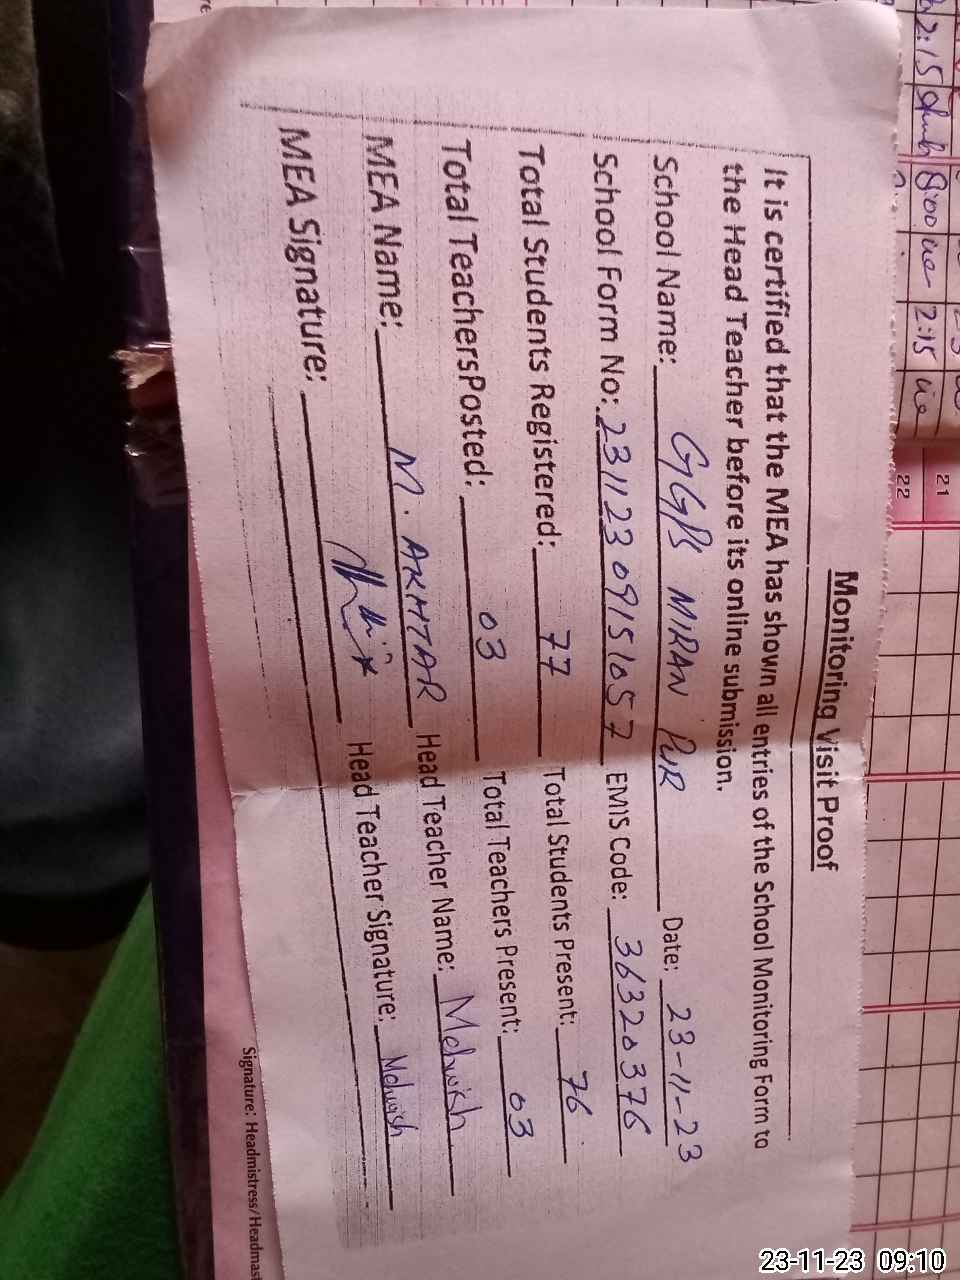 Monitoring Visit Proof
It is certified that the MEA has shown all entries of the School Monitoring Form to
the Head Teacher before its online submission.
School Name: GGPS MIRAN PUR Date: 23-11-23
School Form No: 231123 09151057 EMIS Code: 36320376
Total Students Registered: 77 Total Students Present: 76
Total TeachersPosted: 03 Total Teachers Present: 03
MEA Name: M. AKHTAR Head Teacher Name: Mehwish
MEA Signature: Head Teacher Signature: Mehwish
Signature: Headmistress/Headmast
21
22
2:15 8:00 2:15
23-11-23 09:10